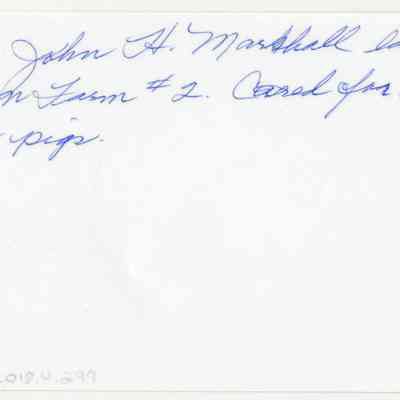 John H. Marshall
Farm #2. Cared for
pigs.
2018.4.297